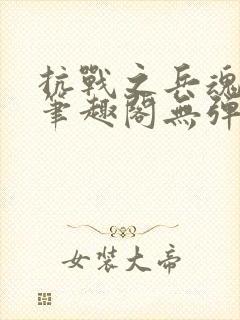 抗戰之兵魂
筆趣閣無彈
女裝大帝